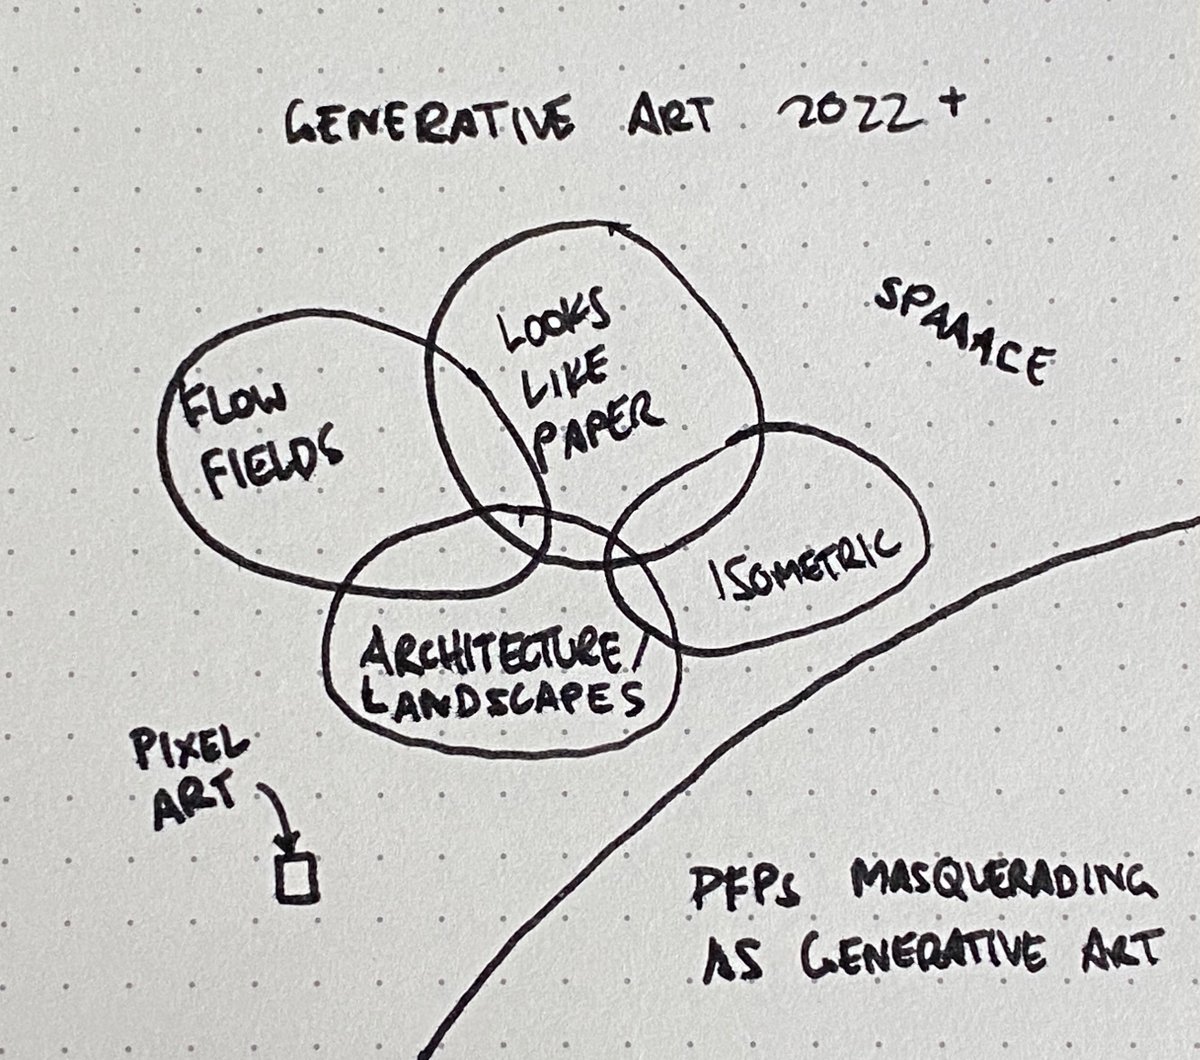 GENERATIVE ART 2022+
SPAAACE
LOOKS
LIKE
PAPER
FLOW
FIELDS
ISOMETRIC
ARCHITECTURE/
LANDSCAPES
PIXEL
ART
PFPS MASQUERADING
AS GENERATIVE ART